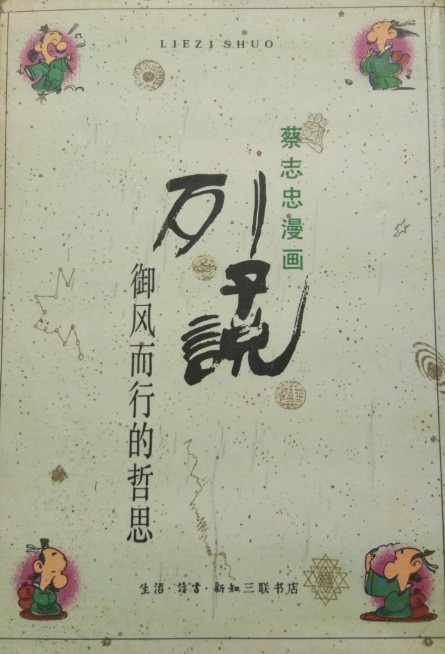 LIEZI SHUO
蔡志忠漫画
列子說
御风而行的哲思
生活·讀書·新知三联书店